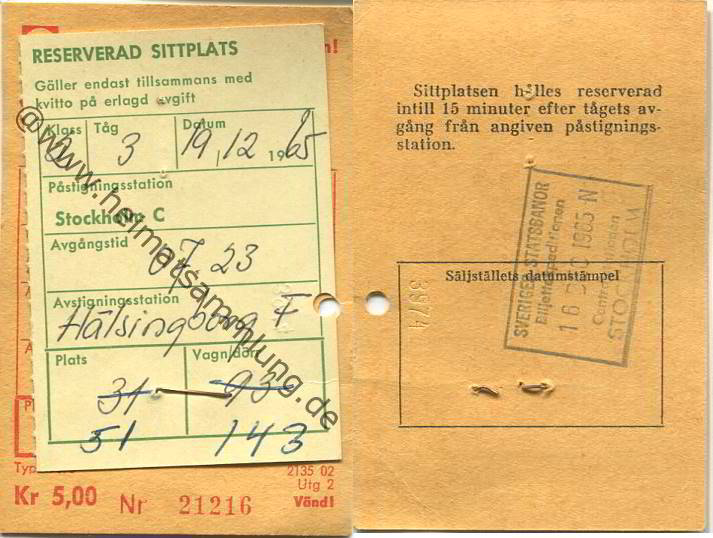 n!
RESERVERAD SITTPLATS
Gäller endast tillsammans med
kvitto på erlagd avgift
Klass Tåg Datum
3 19,12 1965
Påstigningsstation
Stockholm C
Avgångstid
07 23
Avstigningsstation
Hälsingborg F
Plats Vagn/don
31 93
51 143
Typ
2135 02
Utg 2
Kr 5,00 Nr 21216 Vänd!
@www.heimatsammlung.de
Sittplatsen hålles reserverad
intill 15 minuter efter tågets av-
gång från angiven påstignings-
station.
Säljställets datumstämpel
SVERIGES STATSBANOR
Biljettexpeditionen
16 DEC 1965 N
Centralstationen
STOCKHOLM
3974